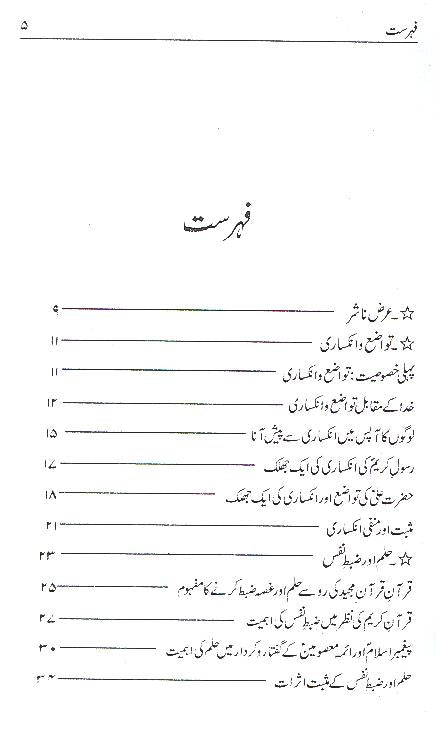 فہرست ۵
فہرست
☆۔عرض ناشر ۹
☆۔تواضع و انکساری ۱۱
پہلی خصوصیت: تواضع و انکساری ۱۱
خدا کے مقابل تواضع و انکساری ۱۲
لوگوں کا آپس میں انکساری سے پیش آنا ۱۵
رسولِ کریمؐ کی انکساری کی ایک جھلک ۱۷
حضرت علیؑ کی تواضع اور انکساری کی ایک جھلک ۱۸
مثبت اور منفی انکساری ۲۱
☆۔حلم اور ضبط نفس ۲۳
قرآنِ قرآن مجید کی رو سے حلم اور غصہ ضبط کرنے کا مفہوم ۲۵
قرآن کریم کی نظر میں ضبط نفس کی اہمیت ۲۷
پیغمبر اسلامؐ اور ائمہ معصومینؑ کے گفتار و کردار میں حلم کی اہمیت ۳۰
حلم اور ضبط نفس کے مثبت اثرات